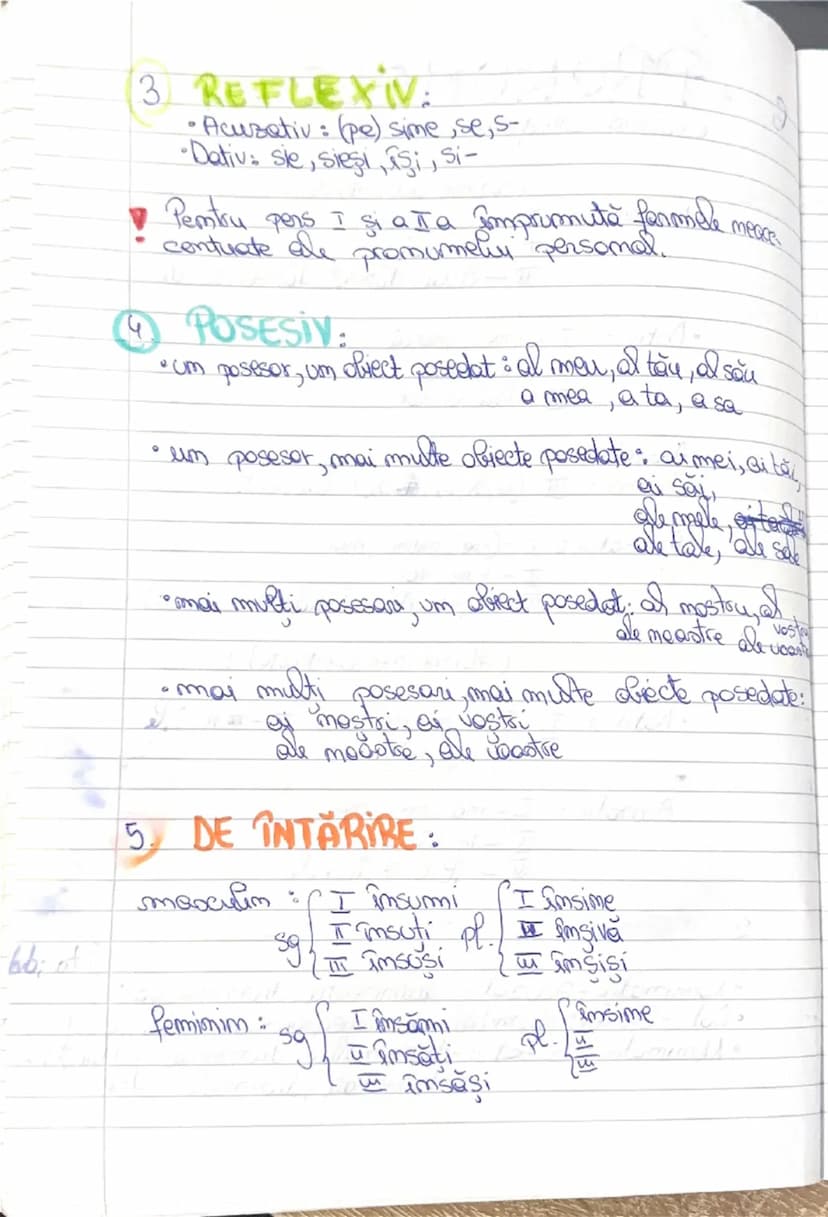 3 REFLEXIV:
• Acuzativ: (pe) sine, se, s-
• Dativ: sie, sieși, își, și-
! Pentru pers I și a II a împrumută formele neacc-
centuate ale pronumelui personal.
4 POSESIV:
• un posesor, un obiect posedat: al meu, al tău, al său
a mea, a ta, a sa
• un posesor, mai multe obiecte posedate: ai mei, ai tăi,
ai săi,
ale mele,
ale tale, ale sale
• mai mulți posesori, un obiect posedat: al nostru, al
vostru
ale noastre ale voastre
• mai mulți posesori, mai multe obiecte posedate:
ai noștri, ai voștri
ale noastre, ale voastre
5. DE ÎNTĂRIRE:
masculin: sg I însumi pl. I însine
II însuți II însivă
III însuși III înșiși
feminin: sg I însămi pl. însine
II însăți II
III însăși III